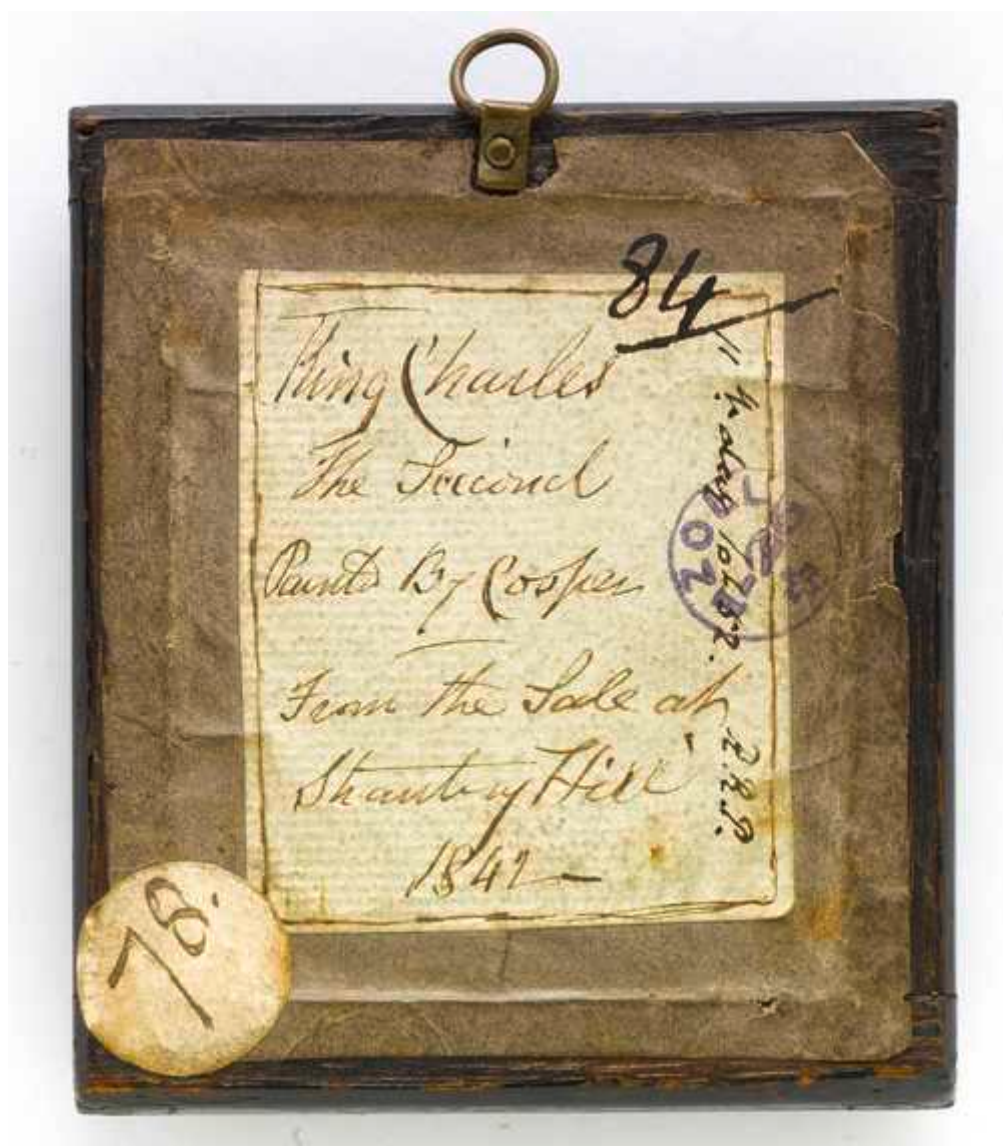 84
King Charles
The Second
Painted By Cosper
From the Sale at
Strawbery Hill
1842
78.